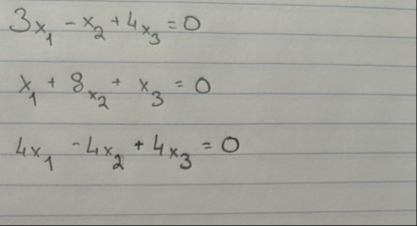 3x₁ - x₂ + 4x₃ = 0
x₁ + 8x₂ + x₃ = 0
4x₁ - 4x₂ + 4x₃ = 0